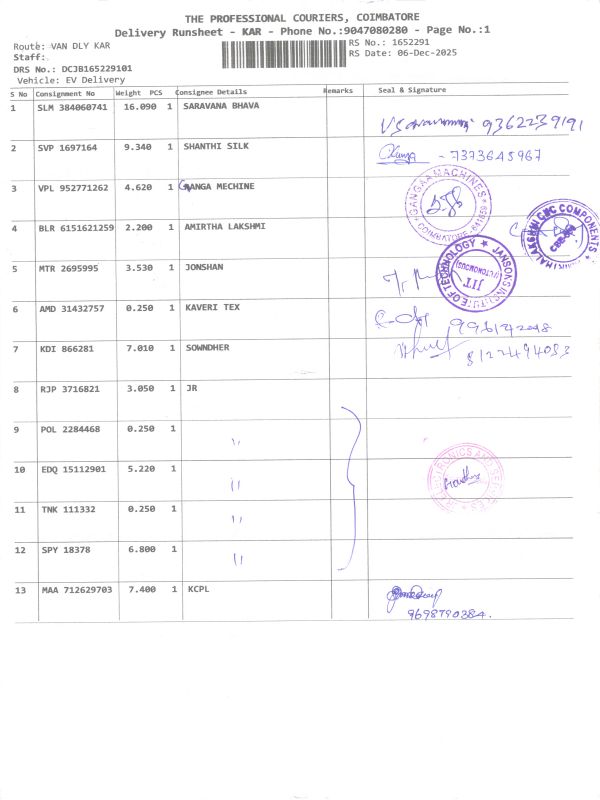 THE PROFESSIONAL COURIERS, COIMBATORE
Delivery Runsheet - KAR - Phone No.:9047080280 - Page No.:1
Route: VAN DLY KAR RS No.: 1652291
Staff: RS Date: 06-Dec-2025
DRS No.: DCJB165229101
Vehicle: EV Delivery
S No Consignment No Weight PCS Consignee Details Remarks Seal & Signature
1 SLM 384060741 16.090 1 SARAVANA BHAVA
9362239191
2 SVP 1697164 9.340 1 SHANTHI SILK
- 7373645967
3 VPL 952771262 4.620 1 GANGA MECHINE
GANGAA MACHINES
COIMBATORE-641659
4 BLR 6151621259 2.200 1 AMIRTHA LAKSHMI
CNC COMPONENTS
5 MTR 2695995 3.530 1 JONSHAN
INSTITUTE OF TECHNOLOGY
(AUTONOMOUS)
JIT
6 AMD 31432757 0.250 1 KAVERI TEX
7 KDI 866281 7.010 1 SOWNDHER
8122494083
8 RJP 3716821 3.050 1 JR
9 POL 2284468 0.250 1 "
10 EDQ 15112901 5.220 1 "
11 TNK 111332 0.250 1 "
12 SPY 18378 6.800 1 "
13 MAA 712629703 7.400 1 KCPL
9698790384.